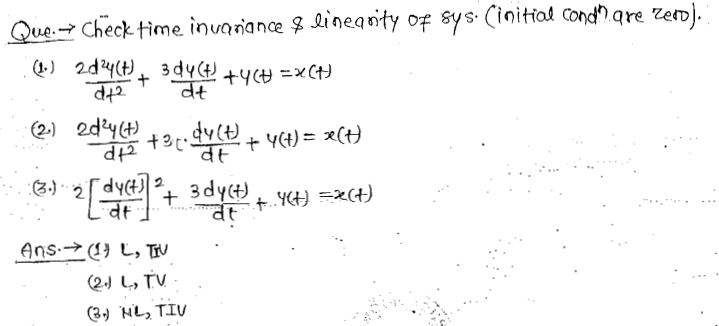 Que.→ Check time invariance & linearity of sys. (initial condⁿ are zero).
(1.) 2d²y(t)/dt² + 3dy(t)/dt + y(t) = x(t)
(2.) 2d²y(t)/dt² + 3t·dy(t)/dt + y(t) = x(t)
(3.) 2[dy(t)/dt]² + 3dy(t)/dt + y(t) = x(t)
Ans.→ (1) L, TIV
(2.) L, TV
(3.) NL, TIV